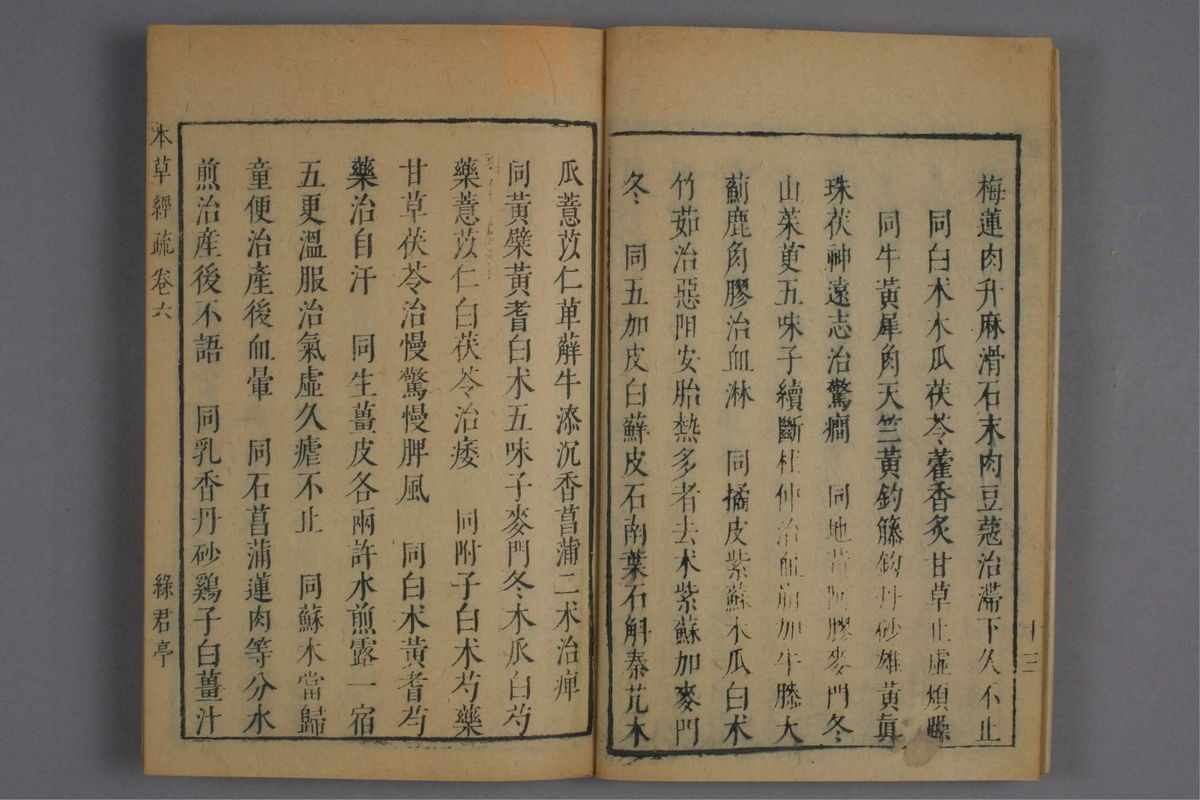 梅蓮肉升麻滑石末肉豆蔻治滯下久不止
同白术木瓜茯苓藿香炙甘草止虛煩躁
同牛黃犀角天竺黃鈎籐鈎丹砂雄黃眞
珠茯神遠志治驚癎　同地黃阿膠麥門冬
山茱萸五味子續斷杜仲治血崩加牛膝大
薊鹿角膠治血淋　同橘皮紫蘇木瓜白术
竹茹治惡阻安胎熱多者去术紫蘇加麥門
冬　同五加皮白蘚皮石南葉石斛秦艽木
十三
瓜薏苡仁萆薢牛漆沉香菖蒲二术治痺
同黃檗黃耆白术五味子麥門冬木瓜白芍
藥薏苡仁白茯苓治痿　同附子白术芍藥
甘草茯苓治慢驚慢脾風　同白术黃耆芍
藥治自汗　同生薑皮各兩許水煎露一宿
五更溫服治氣虛久瘧不止　同蘇木當歸
童便治產後血暈　同石菖蒲蓮肉等分水
煎治產後不語　同乳香丹砂鷄子白薑汁
本草經疏卷六　綠君亭